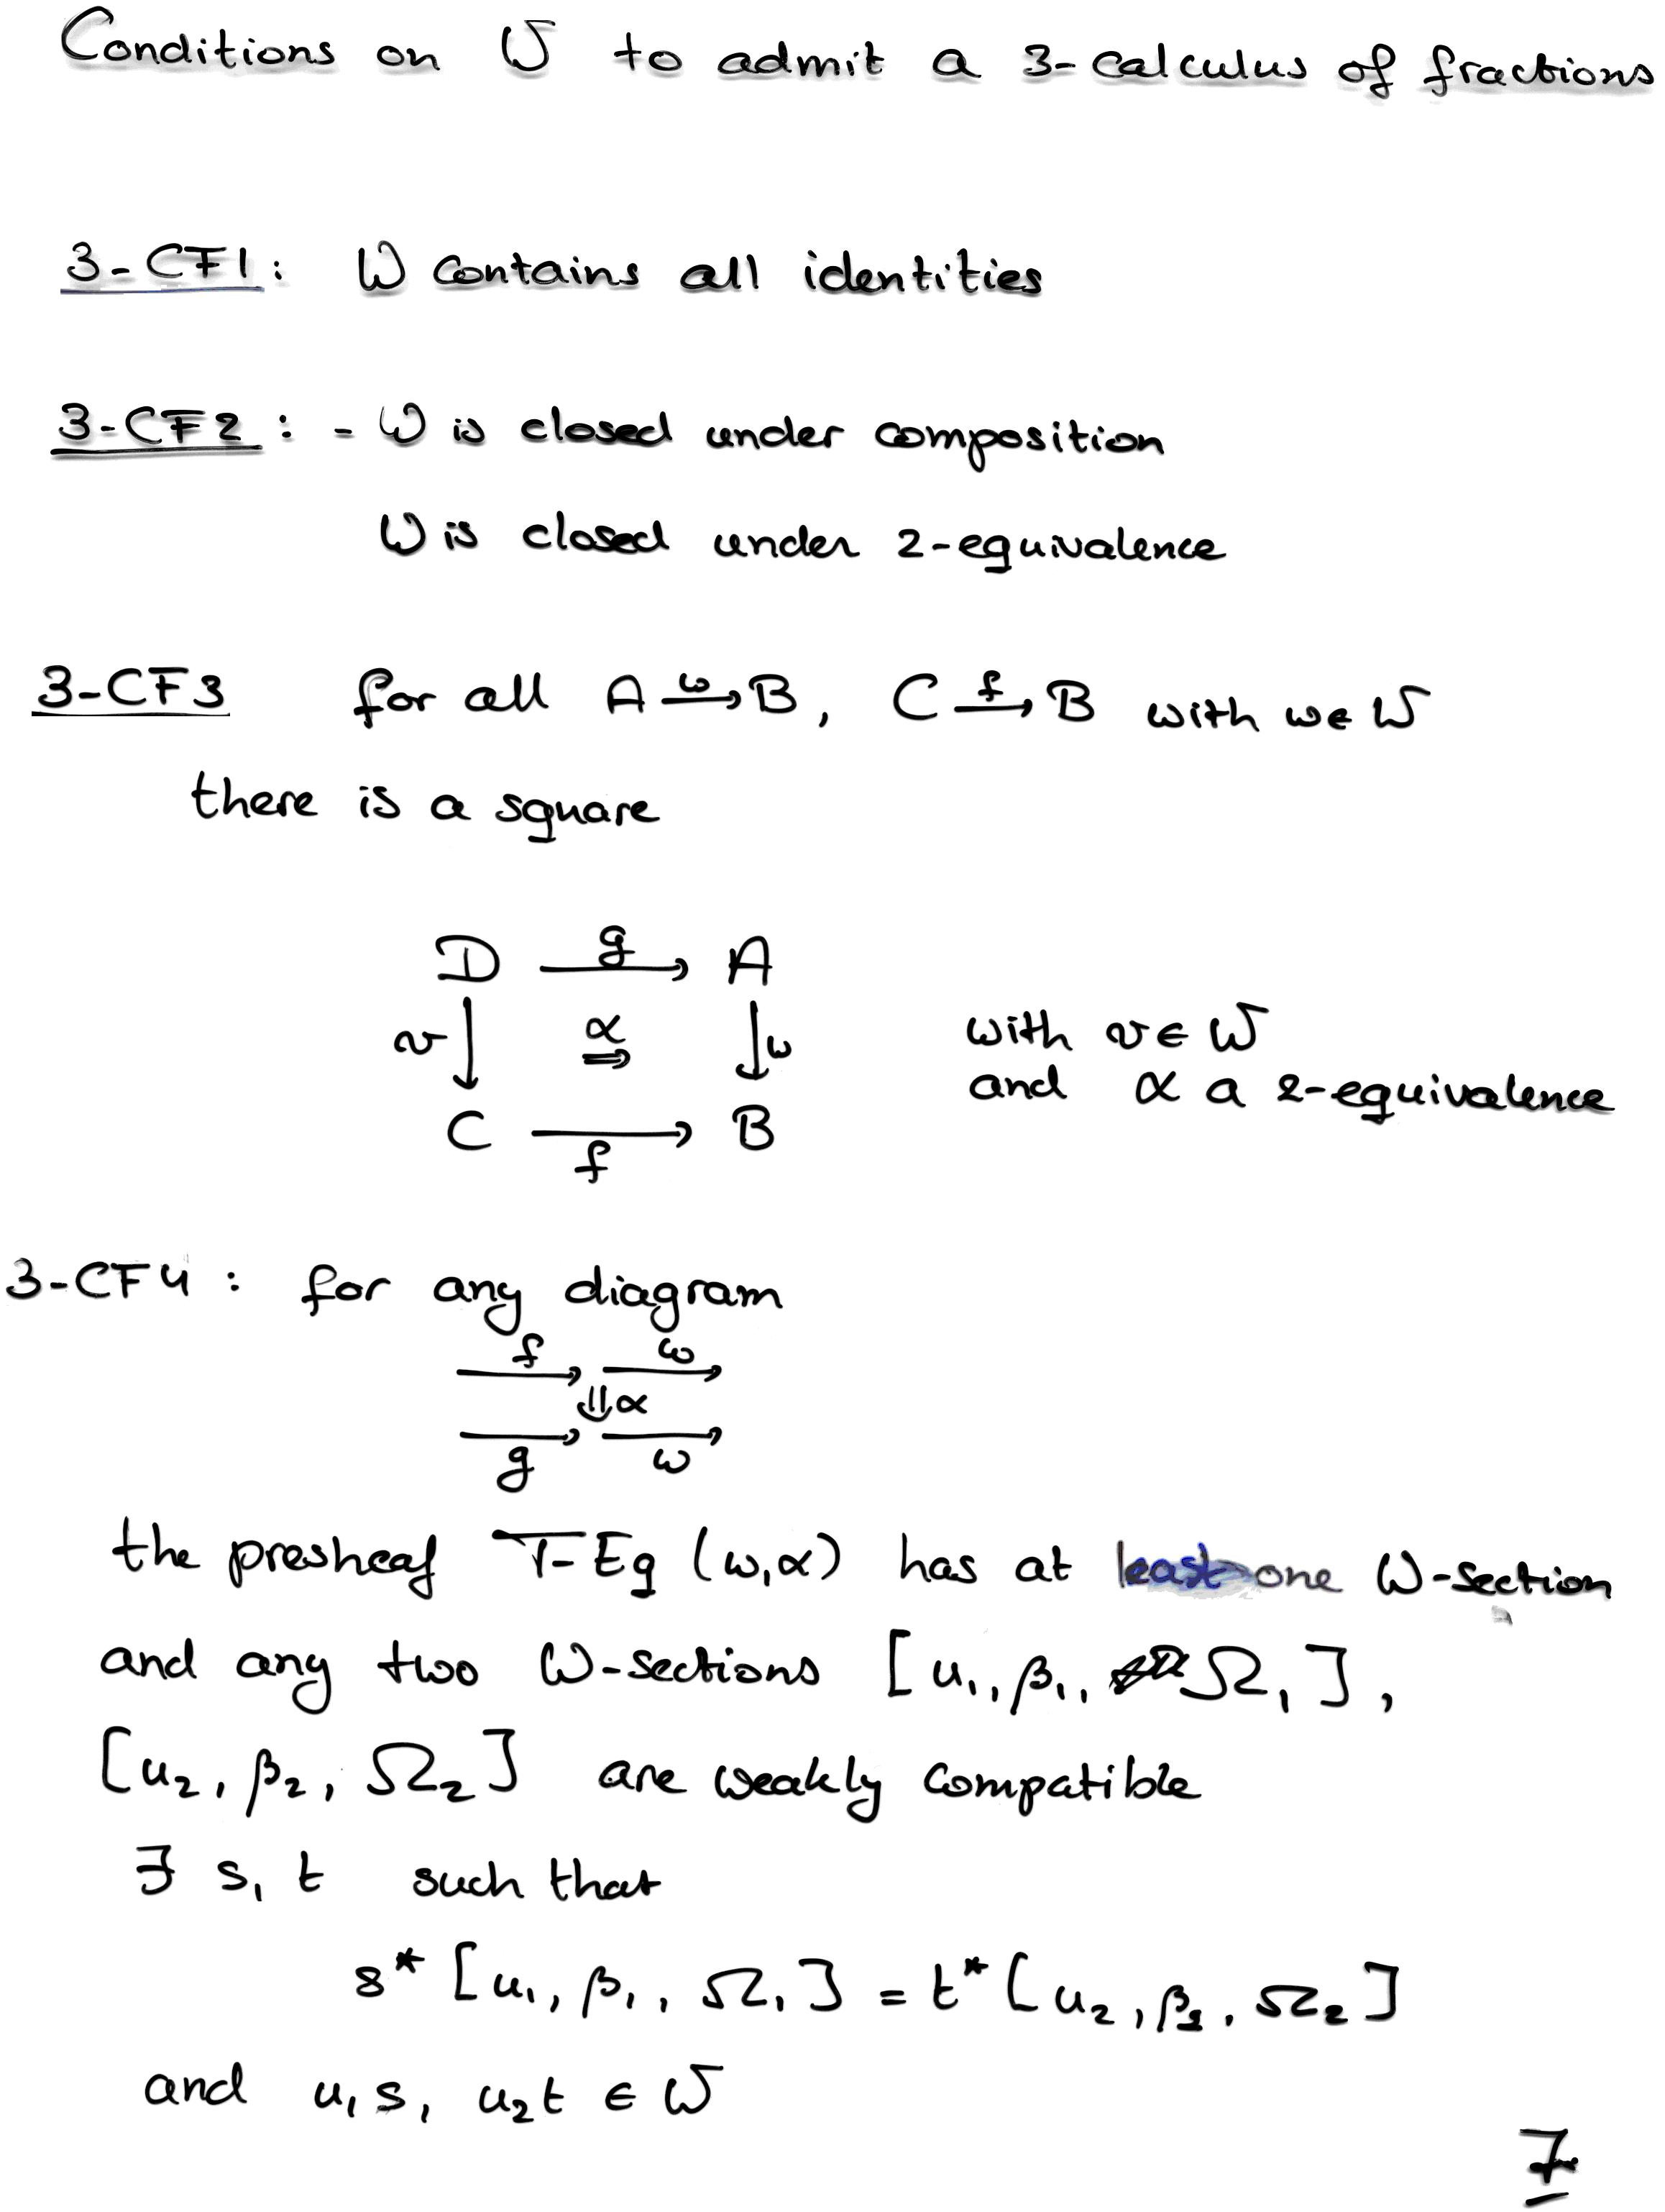 Conditions on W to admit a 3-calculus of fractions
3-CF1: W contains all identities
3-CF2: - W is closed under composition
W is closed under 2-equivalence
3-CF3 for all A →ω B, C →f B with w∈W
there is a square
D →g A
v ↓ α ⇒ ↓ω
C →f B
with v∈W
and α a 2-equivalence
3-CF4: for any diagram
f ω
⇓α
g ω
the presheaf T-Eq (ω,α) has at least one W-section
and any two W-sections [u₁, β₁, Ω₁],
[u₂, β₂, Ω₂] are weakly compatible
∃ s, t such that
s* [u₁, β₁, Ω₁] = t* [u₂, β₂, Ω₂]
and u₁s, u₂t ∈ W
7